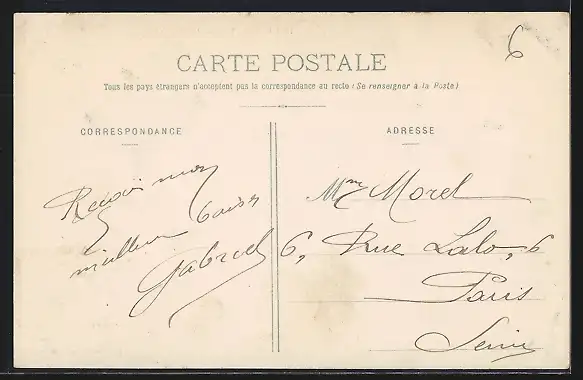 6
CARTE POSTALE
Tous les pays étrangers n'acceptent pas la correspondance au recto (Se renseigner à la Poste)
CORRESPONDANCE
ADRESSE
Reçois mes
meilleurs baisers
Gabriel
Mme Morel
6, Rue Lalo, 6
Paris
Seine